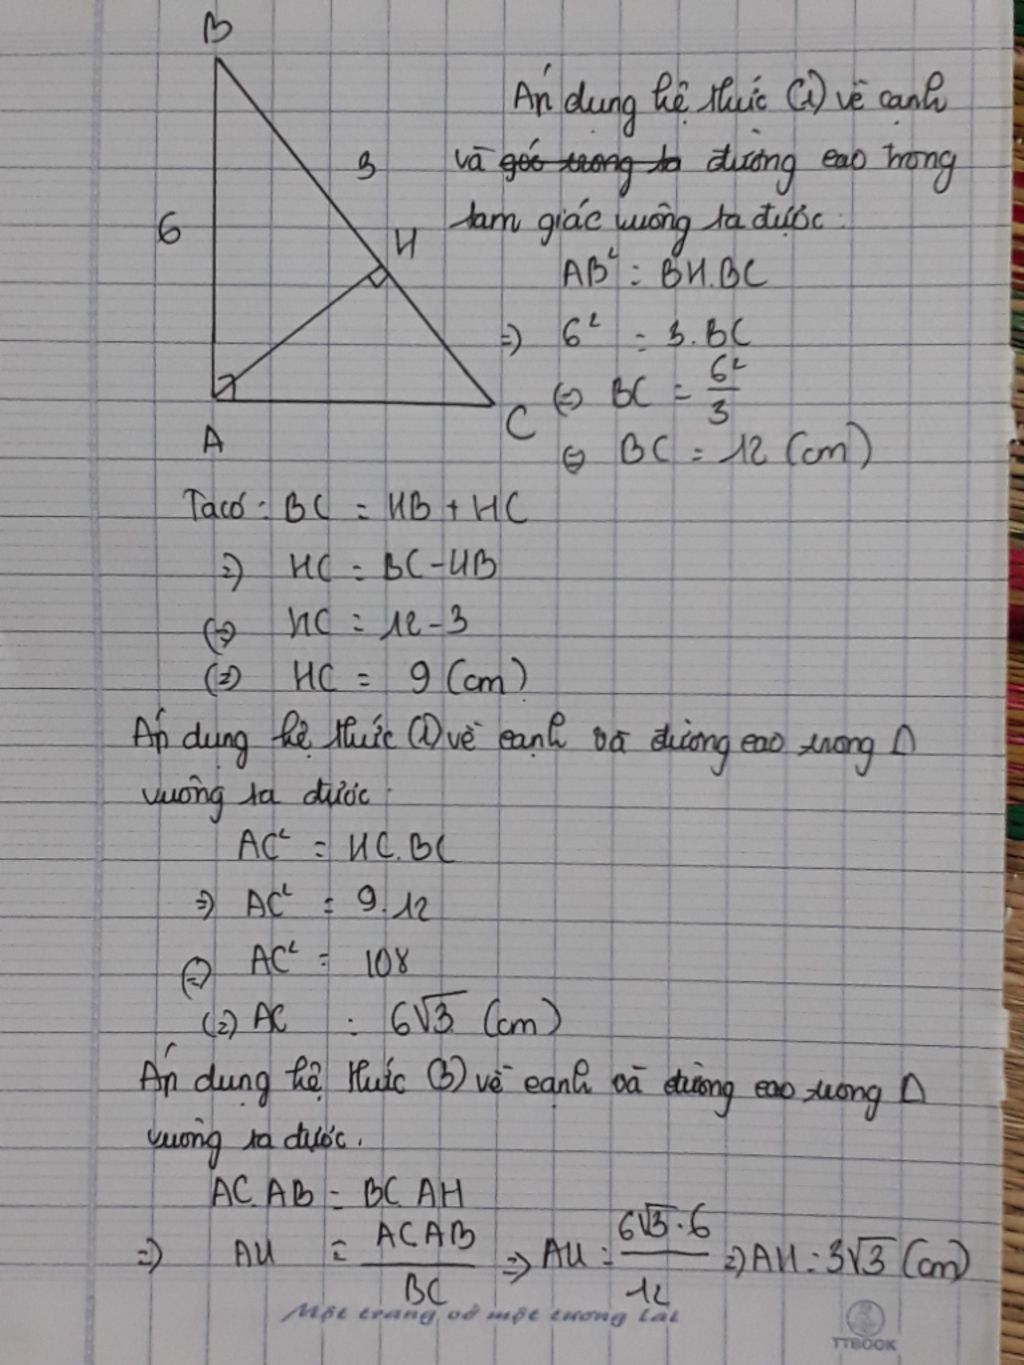 B
Áp dụng hệ thức (1) về cạnh
và góc trong ta đường cao trong
tam giác vuông ta được:
3
6
H
AB² = BH.BC
=> 6² = 3.BC
<=> BC = 6²/3
<=> BC = 12 (cm)
A
C
Ta có: BC = HB + HC
=> HC = BC - HB
<=> HC = 12 - 3
<=> HC = 9 (cm)
Áp dụng hệ thức (1) về cạnh và đường cao trong Δ
vuông ta được:
AC² = HC.BC
=> AC² = 9.12
<=> AC² = 108
<=> AC = 6√3 (cm)
Áp dụng hệ thức (3) về cạnh và đường cao trong Δ
vuông ta được.
AC.AB = BC.AH
=> AH = AC.AB/BC => AH = 6√3.6/12 => AH = 3√3 (cm)
Một trang vở một tương lai
TTBOOK